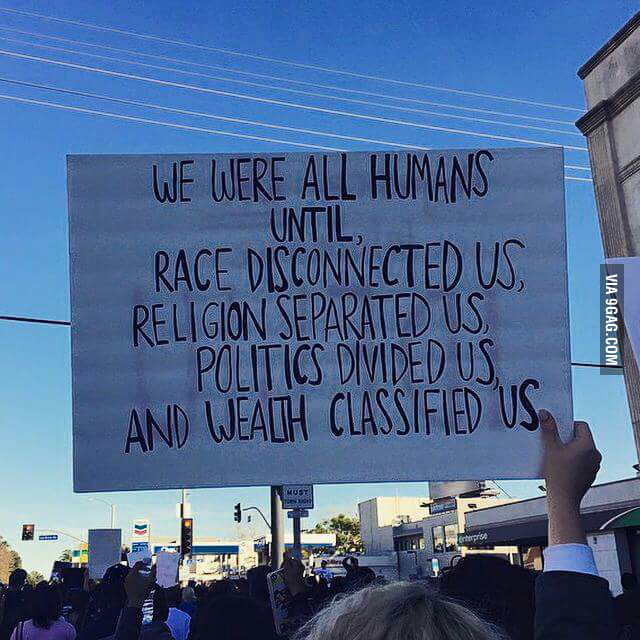 WE WERE ALL HUMANS
UNTIL,
RACE DISCONNECTED US,
RELIGION SEPARATED US,
POLITICS DIVIDED US,
AND WEALTH CLASSIFIED US
VIA 9GAG.COM
MUST
TURN RIGHT
enterprise